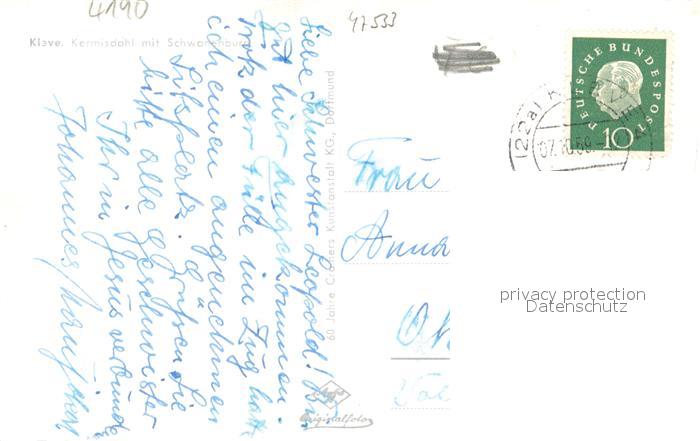 4190
47533
Kleve. Kermisdahl mit Schwanenburg
Liebe Schwester Leopold! Bin
gut hier angekommen.
Trotz der Fülle im Zug hatte
ich einen angenehmen
Sitzplatz. Grüßen Sie
bitte alle Geschwister
Ihr in Jesus verbundener
Johannes
60 Jahre Cramers Kunstanstalt KG., Dortmund
Originalfoto
Frau
Anna
DEUTSCHE BUNDESPOST
10
(22a)
07.10.59
privacy protection
Datenschutz